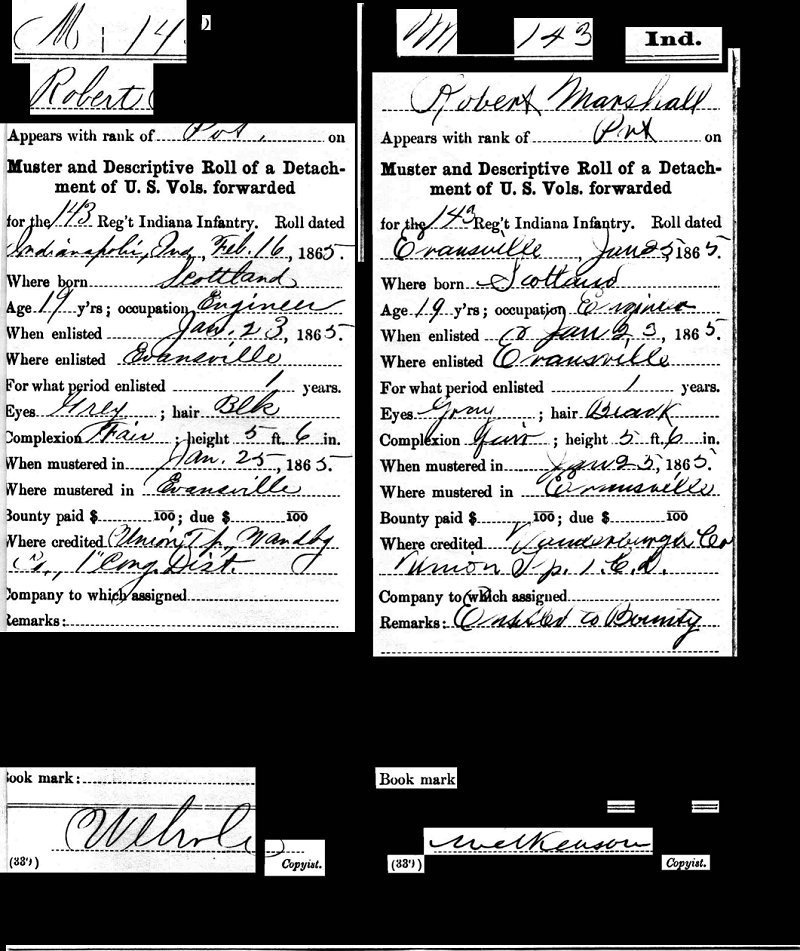 M | 14
Robert
Appears with rank of Pvt. on
Muster and Descriptive Roll of a Detach-
ment of U. S. Vols. forwarded
for the 143 Reg't Indiana Infantry. Roll dated
Indianapolis, Ind., Feb. 16, 1865.
Where born Scottland
Age 19 y'rs; occupation Engineer
When enlisted Jan. 23, 1865.
Where enlisted Evansville
For what period enlisted 1 years.
Eyes Grey ; hair Blk
Complexion Fair ; height 5 ft. 6 in.
When mustered in Jan. 25, 1865.
Where mustered in Evansville
Bounty paid $ 100; due $ 100
Where credited Union Tp., Vandbg
Co., 1" Cong. Dist.
Company to which assigned
Remarks:
Book mark:
(339) Copyist.
M 143 Ind.
Robert Marshall
Appears with rank of Pvt on
Muster and Descriptive Roll of a Detach-
ment of U. S. Vols. forwarded
for the 143 Reg't Indiana Infantry. Roll dated
Evansville, Jan 25 1865.
Where born Scotland
Age 19 y'rs; occupation Engineer
When enlisted Jan 23, 1865.
Where enlisted Evansville
For what period enlisted 1 years.
Eyes Gray ; hair Black
Complexion Fair ; height 5 ft. 6 in.
When mustered in Jan 25, 1865.
Where mustered in Evansville
Bounty paid $ 100; due $ 100
Where credited Vanderburgh Co
Union Tp. 1. C. D.
Company to which assigned
Remarks: Entitled to Bounty
Book mark
(339) Copyist.